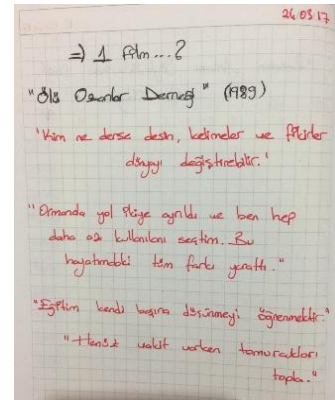 24.03.17
=) 1 film...?
"Ölü Ozanlar Derneği" (1989)
"Kim ne derse desin, kelimeler ve fikirler
dünyayı değiştirebilir."
"Ormanda yol ikiye ayrıldı ve ben hep
daha az kullanılanı seçtim. Bu
hayatımdaki tüm farkı yarattı."
"Eğitim kendi başına düşünmeyi öğrenmektir."
"Henüz vakit varken tomurcukları
topla."